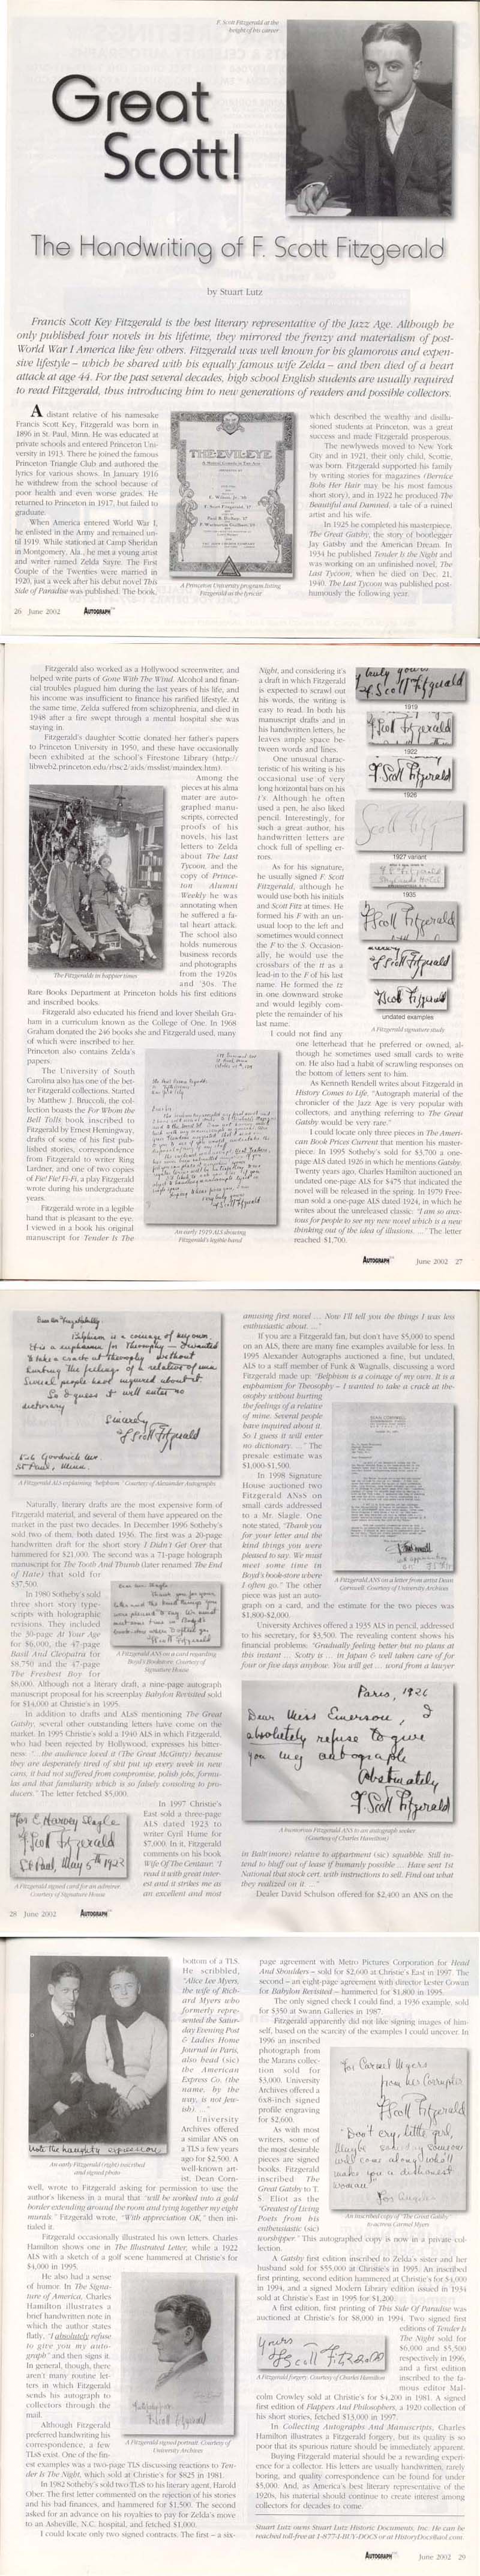 F. Scott Fitzgerald at the
height of his career
Great
Scott!
The Handwriting of F. Scott Fitzgerald
by Stuart Lutz
Francis Scott Key Fitzgerald is the best literary representative of the Jazz Age. Although he
only published four novels in his lifetime, they mirrored the frenzy and materialism of post-
World War I America like few others. Fitzgerald was well known for his glamorous and expen-
sive lifestyle – which he shared with his equally famous wife Zelda – and then died of a heart
attack at age 44. For the past several decades, high school English students are usually required
to read Fitzgerald, thus introducing him to new generations of readers and possible collectors.
A distant relative of his namesake
Francis Scott Key, Fitzgerald was born in
1896 in St. Paul, Minn. He was educated at
private schools and entered Princeton Uni-
versity in 1913. There he joined the famous
Princeton Triangle Club and authored the
lyrics for various shows. In January 1916
he withdrew from the school because of
poor health and even worse grades. He
returned to Princeton in 1917, but failed to
graduate.
When America entered World War I,
he enlisted in the Army and remained un-
til 1919. While stationed at Camp Sheridan
in Montgomery, Ala., he met a young artist
and writer named Zelda Sayre. The First
Couple of the Twenties were married in
1920, just a week after his debut novel This
Side of Paradise was published. The book,
THE EVIL EYE
A Princeton University program listing
Fitzgerald as the lyricist
which described the wealthy and disillu-
sioned students at Princeton, was a great
success and made Fitzgerald prosperous.
The newlyweds moved to New York
City and in 1921, their only child, Scottie,
was born. Fitzgerald supported his family
by writing stories for magazines (Bernice
Bobs Her Hair may be his most famous
short story), and in 1922 he produced The
Beautiful and Damned, a tale of a ruined
artist and his wife.
In 1925 he completed his masterpiece,
The Great Gatsby, the story of bootlegger
Jay Gatsby and the American Dream. In
1934 he published Tender Is the Night and
was working on an unfinished novel, The
Last Tycoon, when he died on Dec. 21,
1940. The Last Tycoon was published post-
humously the following year.
26 June 2002 AUTOGRAPH
Fitzgerald also worked as a Hollywood screenwriter, and
helped write parts of Gone With The Wind. Alcohol and finan-
cial troubles plagued him during the last years of his life, and
his income was insufficient to finance his rarified lifestyle. At
the same time, Zelda suffered from schizophrenia, and died in
1948 after a fire swept through a mental hospital she was
staying in.
Fitzgerald's daughter Scottie donated her father's papers
to Princeton University in 1950, and these have occasionally
been exhibited at the school's Firestone Library (http://
libweb2.princeton.edu/rbsc2/aids/msslist/maindex.htm).
Among the
pieces at his alma
mater are auto-
graphed manu-
scripts, corrected
proofs of his
novels, his last
letters to Zelda
about The Last
Tycoon, and the
copy of Prince-
ton Alumni
Weekly he was
annotating when
he suffered a fa-
tal heart attack.
The school also
holds numerous
business records
and photographs
from the 1920s
and '30s. The
The Fitzgeralds in happier times
Rare Books Department at Princeton holds his first editions
and inscribed books.
Fitzgerald also educated his friend and lover Sheilah Gra-
ham in a curriculum known as the College of One. In 1968
Graham donated the 246 books she and Fitzgerald used, many
of which were inscribed to her.
Princeton also contains Zelda's
papers.
The University of South
Carolina also has one of the bet-
ter Fitzgerald collections. Started
by Matthew J. Bruccoli, the col-
lection boasts the For Whom the
Bell Tolls book inscribed to
Fitzgerald by Ernest Hemingway,
drafts of some of his first pub-
lished stories, correspondence
from Fitzgerald to writer Ring
Lardner, and one of two copies
of Fie! Fie! Fi-Fi, a play Fitzgerald
wrote during his undergraduate
years.
Fitzgerald wrote in a legible
hand that is pleasant to the eye.
I viewed in a book his original
manuscript for Tender Is The
An early 1919 ALS showing
Fitzgerald's legible hand
Night, and considering it's
a draft in which Fitzgerald
is expected to scrawl out
his words, the writing is
easy to read. In both his
manuscript drafts and in
his handwritten letters, he
leaves ample space be-
tween words and lines.
One unusual charac-
teristic of his writing is his
occasional use of very
long horizontal bars on his
t's. Although he often
used a pen, he also liked
pencil. Interestingly, for
such a great author, his
handwritten letters are
chock full of spelling er-
rors.
As for his signature,
he usually signed F. Scott
Fitzgerald, although he
would use both his initials
and Scott Fitz at times. He
formed his F with an un-
usual loop to the left and
sometimes would connect
the F to the S. Occasion-
ally, he would use the
crossbars of the tt as a
lead-in to the F of his last
name. He formed the tz
in one downward stroke
and would legibly com-
plete the remainder of his
last name.
I could not find any
one letterhead that he preferred or owned, al-
though he sometimes used small cards to write
on. He also had a habit of scrawling responses on
the bottom of letters sent to him.
As Kenneth Rendell writes about Fitzgerald in
History Comes to Life, "Autograph material of the
chronicler of the Jazz Age is very popular with
collectors, and anything referring to The Great
Gatsby would be very rare."
I could locate only three pieces in The Ameri-
can Book Prices Current that mention his master-
piece. In 1995 Sotheby's sold for $3,700 a one-
page ALS dated 1926 in which he mentions Gatsby.
Twenty years ago, Charles Hamilton auctioned an
undated one-page ALS for $475 that indicated the
novel will be released in the spring. In 1979 Free-
man sold a one-page ALS dated 1924, in which he
writes about the unreleased classic: "I am so anx-
ious for people to see my new novel which is a new
thinking out of the idea of illusions. ..." The letter
reached $1,700.
Truly yours
F Scott Fitzgerald
1919
F Scott Fitzgerald
1922
F Scott Fitzgerald
1926
Scott Fitz
1927 variant
1935
F Scott Fitzgerald
F Scott Fitzgerald
F Scott Fitzgerald
undated examples
A Fitzgerald signature study
AUTOGRAPH June 2002 27
Belphism is a coinage of my own.
It is a euphamism for Theosophy – I wanted
to take a crack at theosophy without
hurting the feelings of a relative of mine
Several people have inquired about it.
So I guess it will enter no
dictionary
Sincerely
F Scott Fitzgerald
626 Goodrich Ave
St Paul, Minn.
A Fitzgerald ALS explaining "belphism." Courtesy of Alexander Autographs
Naturally, literary drafts are the most expensive form of
Fitzgerald material, and several of them have appeared on the
market in the past two decades. In December 1996 Sotheby's
sold two of them, both dated 1936. The first was a 20-page
handwritten draft for the short story I Didn't Get Over that
hammered for $21,000. The second was a 71-page holograph
manuscript for The Tooth And Thumb (later renamed The End
of Hate) that sold for
$37,500.
In 1980 Sotheby's sold
three short story type-
scripts with holographic
revisions. They included
the 30-page At Your Age
for $6,000, the 47-page
Basil And Cleopatra for
$8,750 and the 47-page
The Freshest Boy for
$8,000. Although not a literary draft, a nine-page autograph
manuscript proposal for his screenplay Babylon Revisited sold
for $14,000 at Christie's in 1995.
A Fitzgerald ANS on a card regarding
Boyd's Bookstore. Courtesy of
Signature House
In addition to drafts and ALSs mentioning The Great
Gatsby, several other outstanding letters have come on the
market. In 1995 Christie's sold a 1940 ALS in which Fitzgerald,
who had been rejected by Hollywood, expresses his bitter-
ness: "...the audience loved it (The Great McGinty) because
they are desperately tired of shit put up every week in new
cans. it had not suffered from compromise, polish jobs, formu-
las and that familiarity which is so falsely consoling to pro-
ducers." The letter fetched $5,000.
In 1997 Christie's
East sold a three-page
ALS dated 1923 to
writer Cyril Hume for
$7,000. In it, Fitzgerald
comments on his book
Wife Of The Centaur: "I
read it with great inter-
est and it strikes me as
an excellent and most
For E Harvey Slagle
F Scott Fitzgerald
St Paul, May 5th 1922
A Fitzgerald signed card for an admirer.
Courtesy of Signature House
amusing first novel ... Now I'll tell you the things I was less
enthusiastic about. ..."
If you are a Fitzgerald fan, but don't have $5,000 to spend
on an ALS, there are many fine examples available for less. In
1995 Alexander Autographs auctioned a fine, but undated,
ALS to a staff member of Funk & Wagnalls, discussing a word
Fitzgerald made up: "Belphism is a coinage of my own. It is a
euphamism for Theosophy – I wanted to take a crack at the-
osophy without hurting
the feelings of a relative
of mine. Several people
have inquired about it.
So I guess it will enter
no dictionary. ..." The
presale estimate was
$1,000-$1,500.
In 1998 Signature
House auctioned two
Fitzgerald ANSs on
small cards addressed
to a Mr. Slagle. One
note stated, "Thank you
for your letter and the
kind things you were
pleased to say. We must
meet some time in
Boyd's book-store where
I often go." The other
piece was just an auto-
graph on a card, and the estimate for the two pieces was
$1,800-$2,000.
A Fitzgerald ANS on a letter from artist Dean
Cornwell. Courtesy of University Archives
University Archives offered a 1935 ALS in pencil, addressed
to his secretary, for $3,500. The revealing content shows his
financial problems: "Gradually feeling better but no plans at
this instant ... Scotty is ... in Japan & well taken care of for
four or five days anyhow. You will get ... word from a lawyer
Paris, 1926
Dear Miss Emerson, I
absolutely refuse to give
you my autograph
Obstinately
F Scott Fitzgerald
A humorous Fitzgerald ANS to an autograph seeker
(Courtesy of Charles Hamilton)
in Baltimore) relative to appartment (sic) squabble. Still in-
tend to bluff out of lease if humanly possible ... Have sent 1st
National that stock cert. with instructions to sell. Find out what
they realized on it. ..."
Dealer David Schulson offered for $2,400 an ANS on the
28 June 2002 AUTOGRAPH
Note the naughty expression
An early Fitzgerald (right) inscribed
and signed photo
bottom of a TLS.
He scribbled,
"Alice Lee Myers,
the wife of Rich-
ard Myers who
formerly repre-
sented the Satur-
day Evening Post
& Ladies Home
Journal in Paris,
also head (sic)
the American
Express Co. (the
name, by the
way, is not Jew-
ish). ..."
University
Archives offered
a similar ANS on
a TLS a few years
ago for $2,500. A
well-known art-
ist, Dean Corn-
well, wrote to Fitzgerald asking for permission to use the
author's likeness in a mural that "will be worked into a gold
border extending around the room and tying together my eight
murals." Fitzgerald wrote, "With appreciation OK," then ini-
tialed it.
Fitzgerald occasionally illustrated his own letters. Charles
Hamilton shows one in The Illustrated Letter, while a 1922
ALS with a sketch of a golf scene hammered at Christie's for
$4,000 in 1995.
He also had a sense
of humor. In The Signa-
ture of America, Charles
Hamilton illustrates a
brief handwritten note in
which the author states
flatly, "I absolutely refuse
to give you my auto-
graph" and then signs it.
In general, though, there
aren't many routine let-
ters in which Fitzgerald
sends his autograph to
collectors through the
mail.
Although Fitzgerald
preferred handwriting his
correspondence, a few
TLSs exist. One of the fin-
est examples was a two-page TLS discussing reactions to Ten-
der Is The Night, which sold at Christie's for $825 in 1981.
A Fitzgerald signed portrait. Courtesy of
University Archives
In 1982 Sotheby's sold two TLSs to his literary agent, Harold
Ober. The first letter commented on the rejection of his stories
and his bad finances, and hammered for $1,500. The second
asked for an advance on his royalties to pay for Zelda's move
to an Asheville, N.C. hospital, and fetched $1,000.
I could locate only two signed contracts. The first – a six-
page agreement with Metro Pictures Corporation for Head
And Shoulders – sold for $2,600 at Christie's East in 1997. The
second – an eight-page agreement with director Lester Cowan
for Babylon Revisited – hammered for $1,800 in 1995.
The only signed check I could find, a 1936 example, sold
for $350 at Swann Galleries in 1987.
Fitzgerald apparently did not like signing images of him-
self, based on the scarcity of the examples I could uncover. In
1996 an inscribed
photograph from
the Marans collec-
tion sold for
$3,000. University
Archives offered a
6x8-inch signed
profile engraving
for $2,600.
As with most
writers, some of
the most desirable
pieces are signed
books. Fitzgerald
inscribed The
Great Gatsby to T.
S. Eliot as the
"Greatest of Living
Poets from his
enthusiastic (sic)
worshipper." This autographed copy is now in a private col-
lection.
For Carmel Myers
from her Corrupter
F Scott Fitzgerald
"Don't cry, little girl,
maybe some day someone
will come along who'll
make you a dishonest
woman."
Los Angeles
An inscribed copy of "The Great Gatsby"
to actress Carmel Myers
A Gatsby first edition inscribed to Zelda's sister and her
husband sold for $55,000 at Christie's in 1995. An inscribed
first printing, second edition hammered at Christie's for $4,000
in 1994, and a signed Modern Library edition issued in 1934
sold at Christie's East in 1995 for $1,200.
A first edition, first printing of This Side Of Paradise was
auctioned at Christie's for $8,000 in 1994. Two signed first
editions of Tender Is
The Night sold for
$6,000 and $5,500
respectively in 1996,
and a first edition
inscribed to the fa-
mous editor Mal-
colm Crowley sold at Christie's for $4,200 in 1981. A signed
first edition of Flappers And Philosophers, a 1920 collection of
his short stories, fetched $13,000 in 1997.
Yours
F Scott Fitzgerald
A Fitzgerald forgery. Courtesy of Charles Hamilton
In Collecting Autographs And Manuscripts, Charles
Hamilton illustrates a Fitzgerald forgery, but its quality is so
poor that its spurious nature should be immediately apparent.
Buying Fitzgerald material should be a rewarding experi-
ence for a collector. His letters are usually handwritten, rarely
boring, and quality correspondence can be found for under
$5,000. And, as America's best literary representative of the
1920s, his material should continue to create interest among
collectors for decades to come.
Stuart Lutz owns Stuart Lutz Historic Documents, Inc. He can be
reached toll-free at 1-877-I-BUY-DOCS or at HistoryDocs@aol.com.
AUTOGRAPH June 2002 29